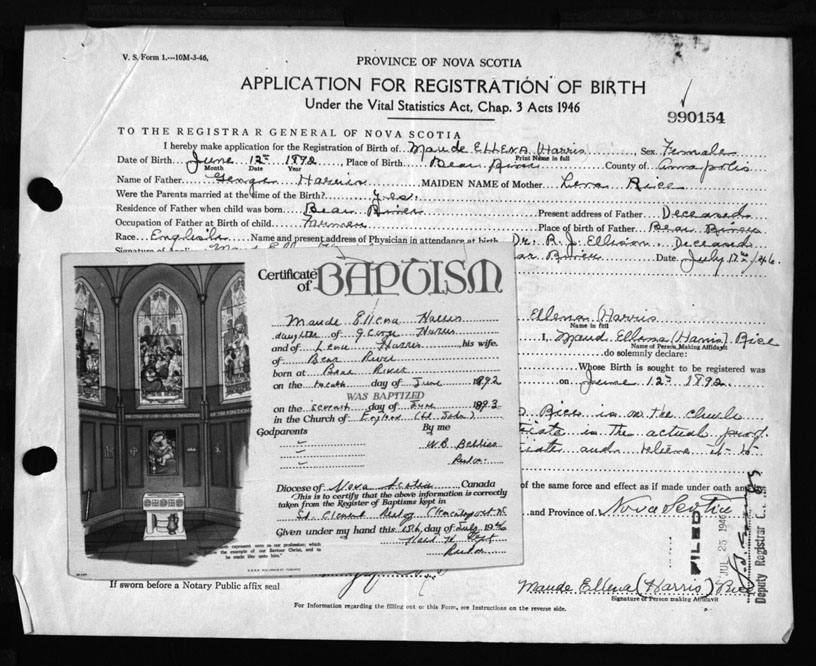 V. S. Form 1.---10M-3-46.
PROVINCE OF NOVA SCOTIA
APPLICATION FOR REGISTRATION OF BIRTH
Under the Vital Statistics Act, Chap. 3 Acts 1946
990154
TO THE REGISTRAR GENERAL OF NOVA SCOTIA
I hereby make application for the Registration of Birth of Maude Ellena Harris Sex Female
Print Name in full
Date of Birth June 12th 1892 Place of Birth Bear River County of Annapolis
Month Date Year
Name of Father George Harris MAIDEN NAME of Mother Lena Rice
Were the Parents married at the time of the Birth? yes
Residence of Father when child was born Bear River Present address of Father Deceased
Occupation of Father at Birth of child Place of birth of Father Bear River
Race English Name and present address of Physician in attendance at birth Dr. R. J. Ellison Deceased
Date July 12th/46
Ellena Harris
Name in full
I, Maud Ellena (Harris) Rice
Name of Person Making Affidavit
do solemnly declare:
Whose Birth is sought to be registered was
on June 12th 1892
is in the church
in the actual
and believe it to
of the same force and effect as if made under oath and
and Province of Nova Scotia
FILED
JUL 25 1946
Deputy Registrar
If sworn before a Notary Public affix seal.
Maude Ellena (Harris) Rice
Signature of Person making Affidavit
For Information regarding the filling out of this Form, see Instructions on the reverse side.
Certificate of BAPTISM
Maude Ellena Harris
daughter of George Harris
and of Lena Harris his wife.
of Bear River
born at Bear River
on the day of June 1892
WAS BAPTIZED
on the day of June 1893
in the Church of England (St. John)
Godparents By me
W.B.
Rector
Diocese of Nova Scotia Canada
This is to certify that the above information is correctly
taken from the Register of Baptisms kept in
St. Clement
Given under my hand this 15th day of July 1946
Rector
represent unto us our profession; which
the example of our Saviour Christ, and to
be made like unto him."